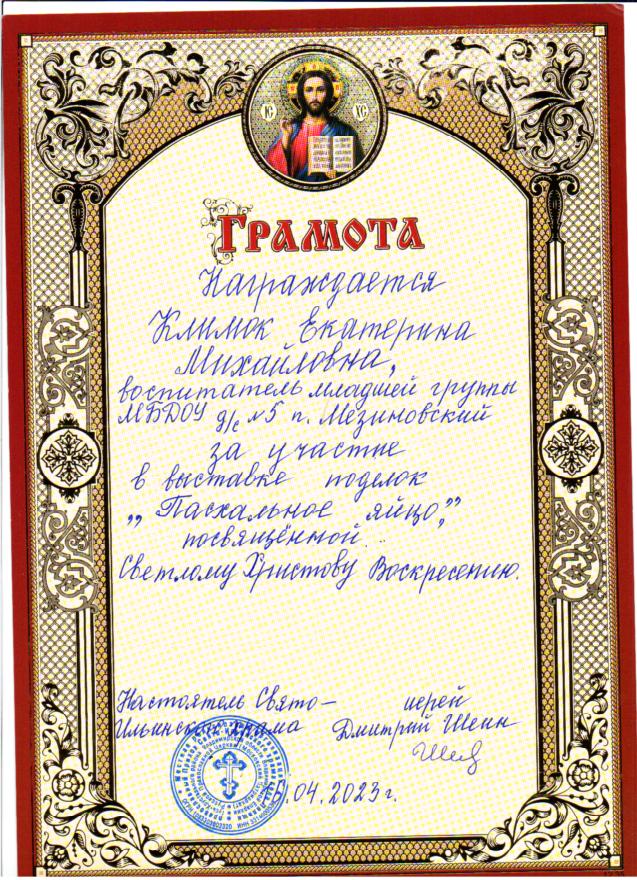 IC XC
ГРАМОТА
Награждается
Климок Екатерина
Михайловна,
воспитатель младшей группы
МБДОУ д/с №5 п. Мезиновский
за участие
в выставке поделок
„Пасхальное яйцо,”
посвящённой
Светлому Христову Воскресению.
Настоятель Свято- иерей
Ильинского храма Дмитрий Шеин
.04.2023 г.